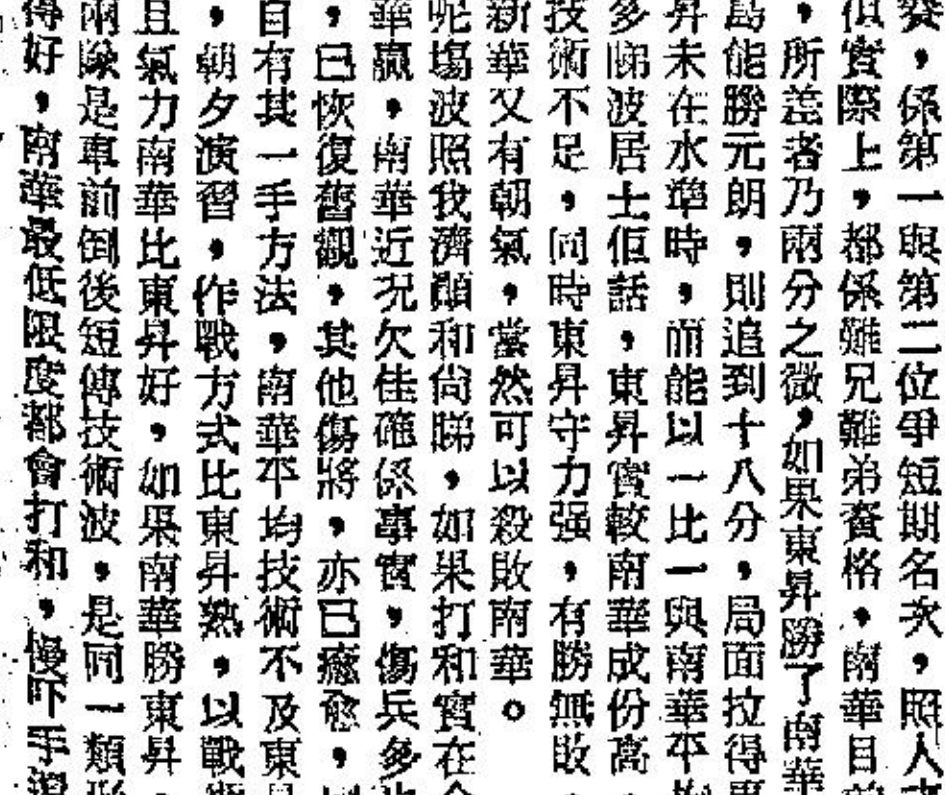 賽，係第一與第二位爭短期名次，照人
但實際上，都係難兄難弟資格，南華目前
，所差者乃兩分之微，如果東昇勝了南華
島能勝元朗，則追到十八分，局面拉得更
昇未在水準時，而能以一比一與南華平均
多睇波居士佢話，東昇實較南華成份高，
技術不足，同時東昇守力强，有勝無敗，
新華又有朝氣，當然可以殺敗南華。
呢塲波照我濟顛和尙睇，如果打和實在
華贏，南華近況欠佳確係事實，傷兵多
，已恢復舊觀，其他傷將，亦已癒愈，
自有其一手方法，南華平均技術不及東昇
，朝夕演習，作戰方式比東昇熟，以戰
且氣力南華比東昇好，如果南華勝東昇，
兩隊是車前倒後短傳技術波，是同一類形
得好，南華最低限度都會打和，慢吓手